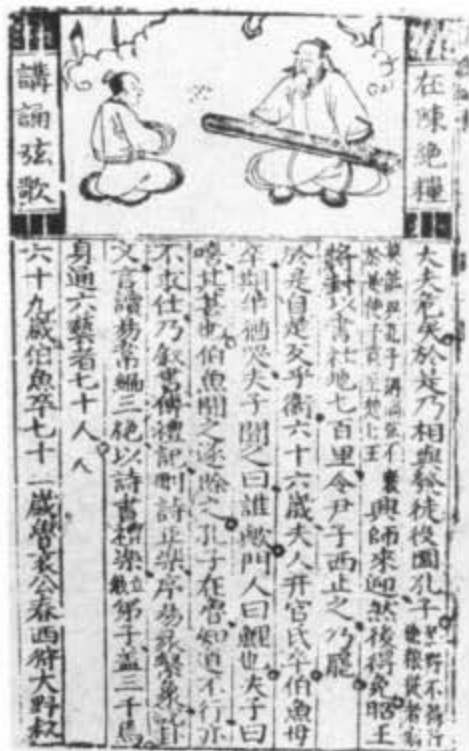 在陳絕糧
講誦弦歌
大夫危矣於是乃相與發徒役圍孔子於野不得行絕糧從者病
莫能興孔子講誦弦不衰於是使子貢至楚王興師來迎然後得免昭王
將封以書社地七百里令尹子西止之乃罷
於是自楚反乎衛六十六歲夫人幵官氏卒伯魚母
卒期年猶哭夫子聞之曰誰歟門人曰鯉也夫子曰
嘻其甚也伯魚聞之遂除之孔子在魯知道不行亦
不求仕乃叙書傳禮記刪詩正樂序易彖繫象說卦
文言讀易韋編三絕以詩書禮樂教弟子蓋三千焉
身通六藝者七十人
六十九歲伯魚卒七十一歲魯哀公春西狩大野叔